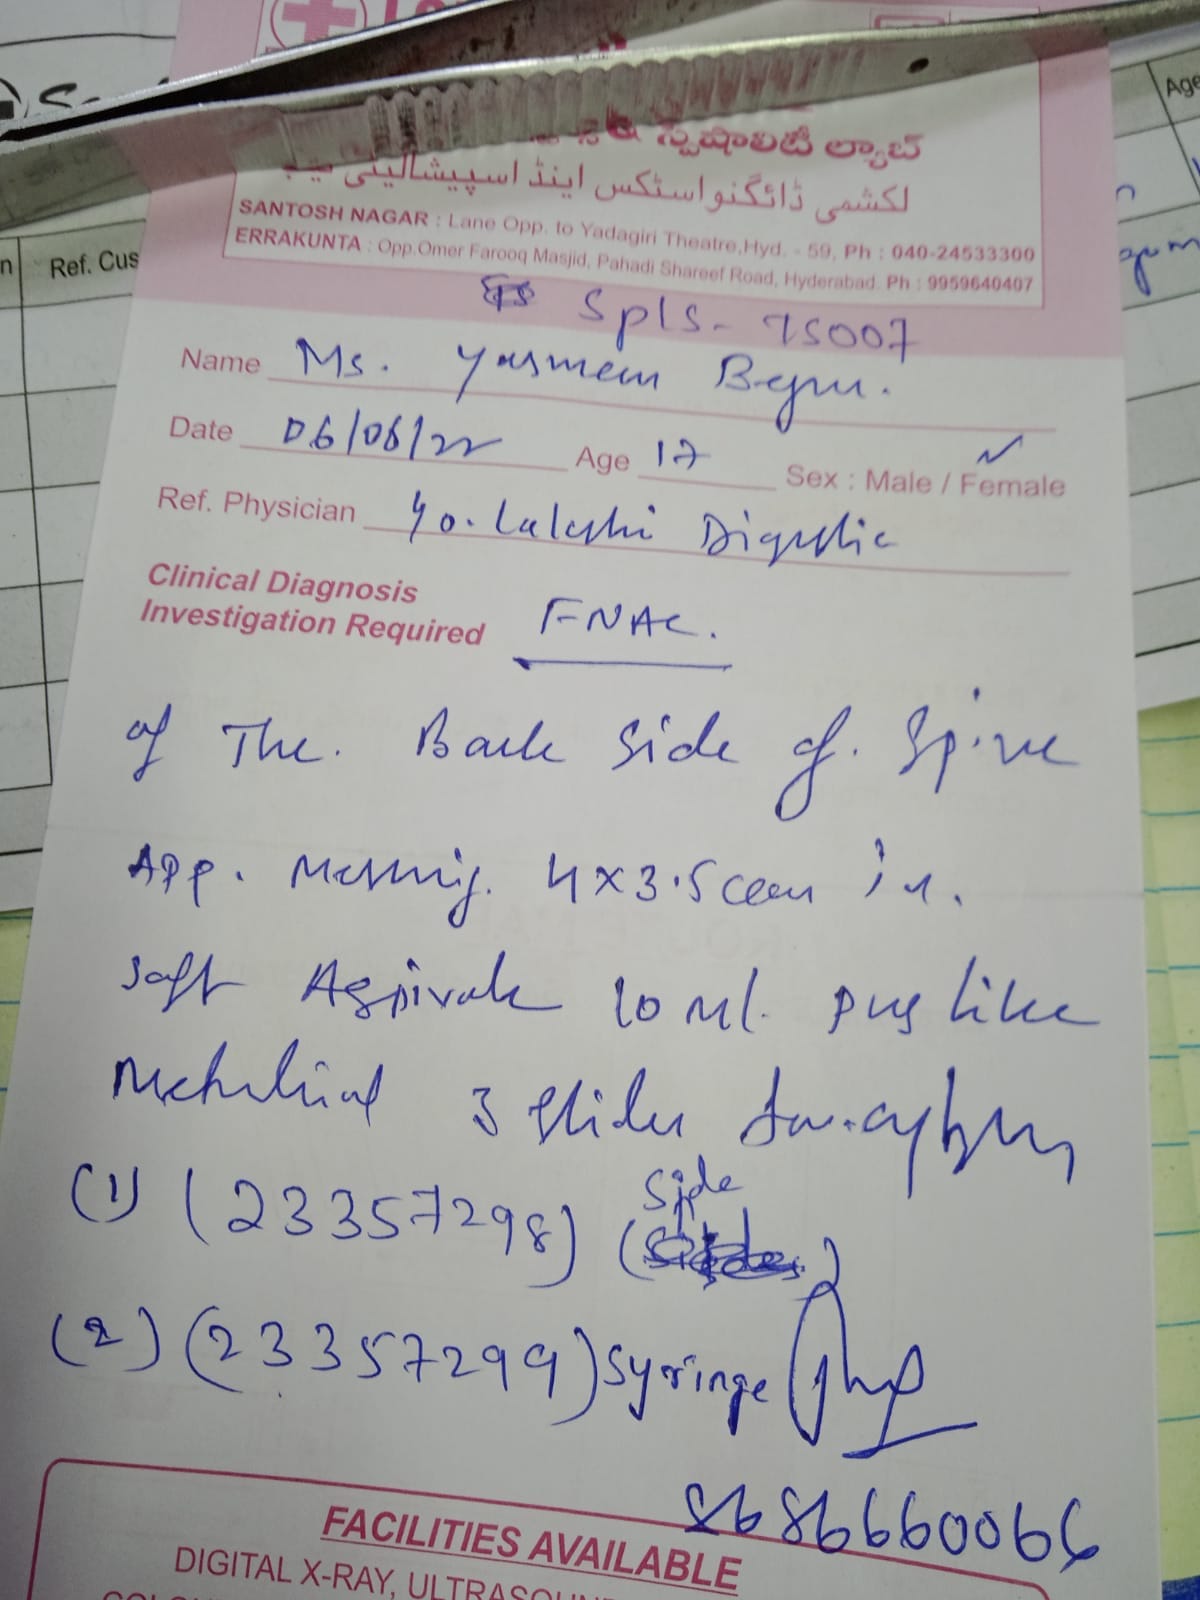 S-
Age
n Ref. Cus
స్పెషాలిటీ ల్యాబ్
لکشمی ڈائگنواسٹکس اینڈ اسپیشالیٹی لیب
SANTOSH NAGAR : Lane Opp. to Yadagiri Theatre,Hyd. - 59, Ph : 040-24533300
ERRAKUNTA : Opp.Omer Farooq Masjid, Pahadi Shareef Road, Hyderabad. Ph : 9959640407
Spls- 75007
Name Ms. Yasmeen Begum.
Date 06/06/22 Age 17 Sex : Male / Female
Ref. Physician
Clinical Diagnosis
Investigation Required FNAC.
of The. Back Side of. Spine
App. Messuring. 4x3.5 cem
Soft Aspirate 10 ml. pus like
Meterial 3 Slides
(1) (23357298) (Side)
(2) (23357299) Syringe
8686660066
FACILITIES AVAILABLE
DIGITAL X-RAY, ULTRASOUN